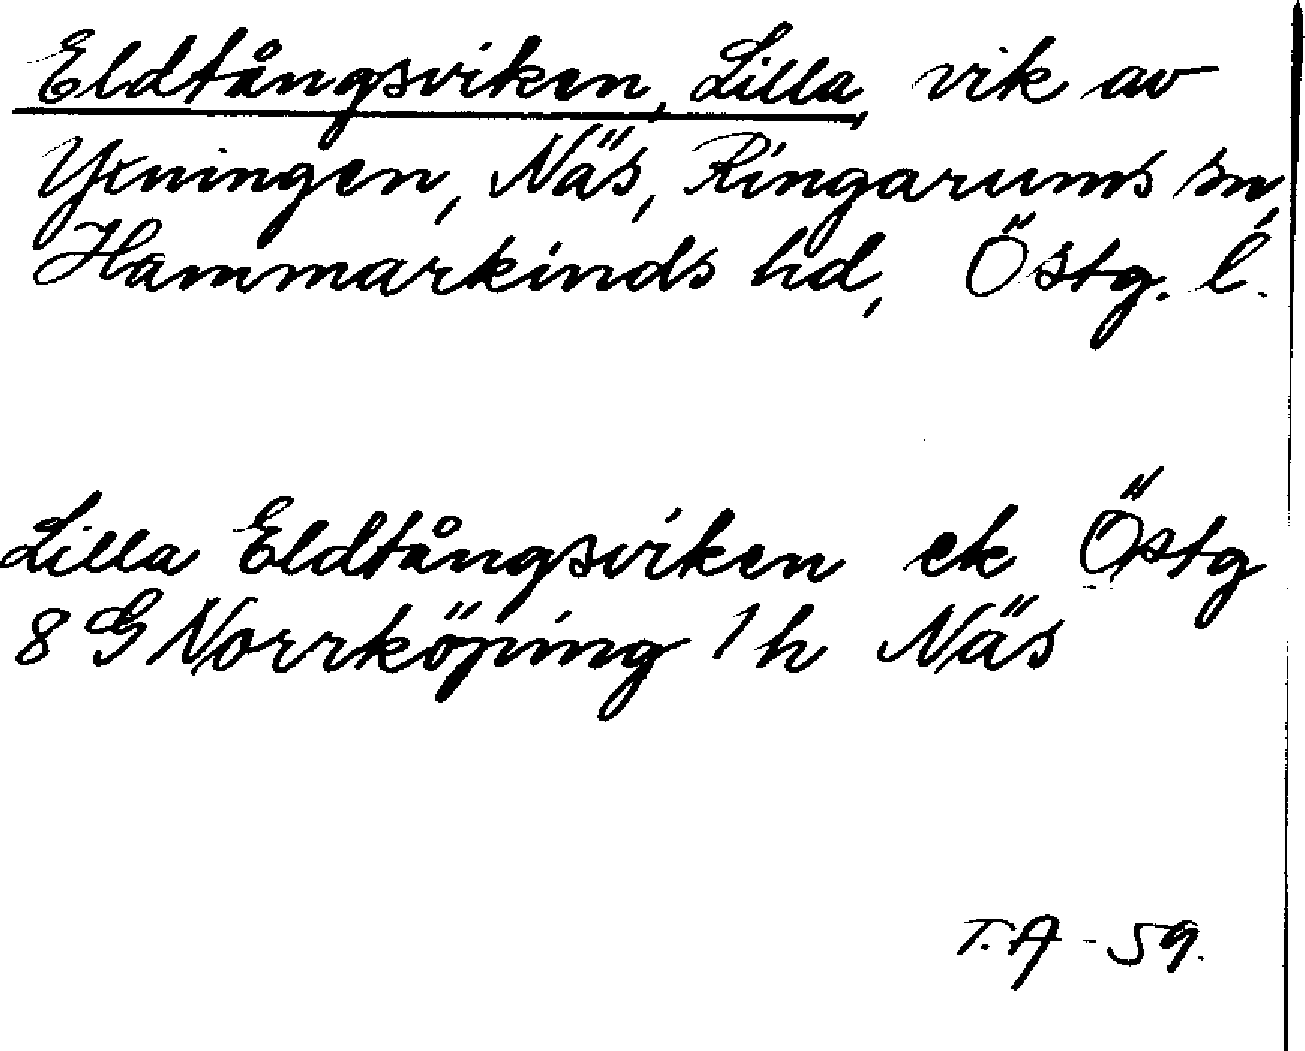 Eldtångsviken, Lilla, vik av
Yxningen, Näs, Ringarums sn,
Hammarkinds hd, Östg. l.
Lilla Eldtångsviken ek Östg
8 G Norrköping 1 h Näs
T. A - 59.